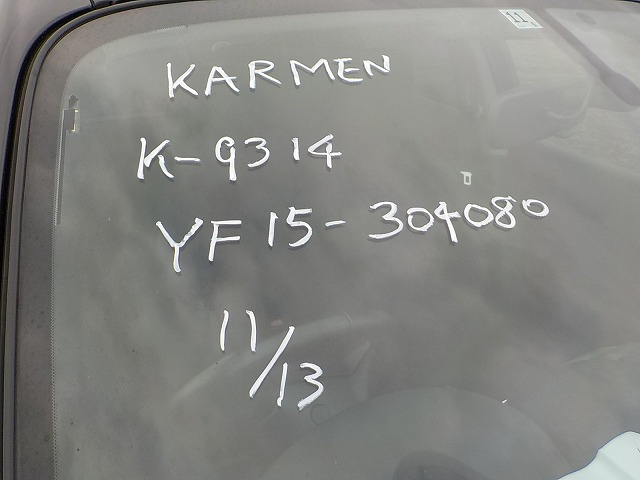 11
KARMEN
K-9314
YF15-304080
11/13